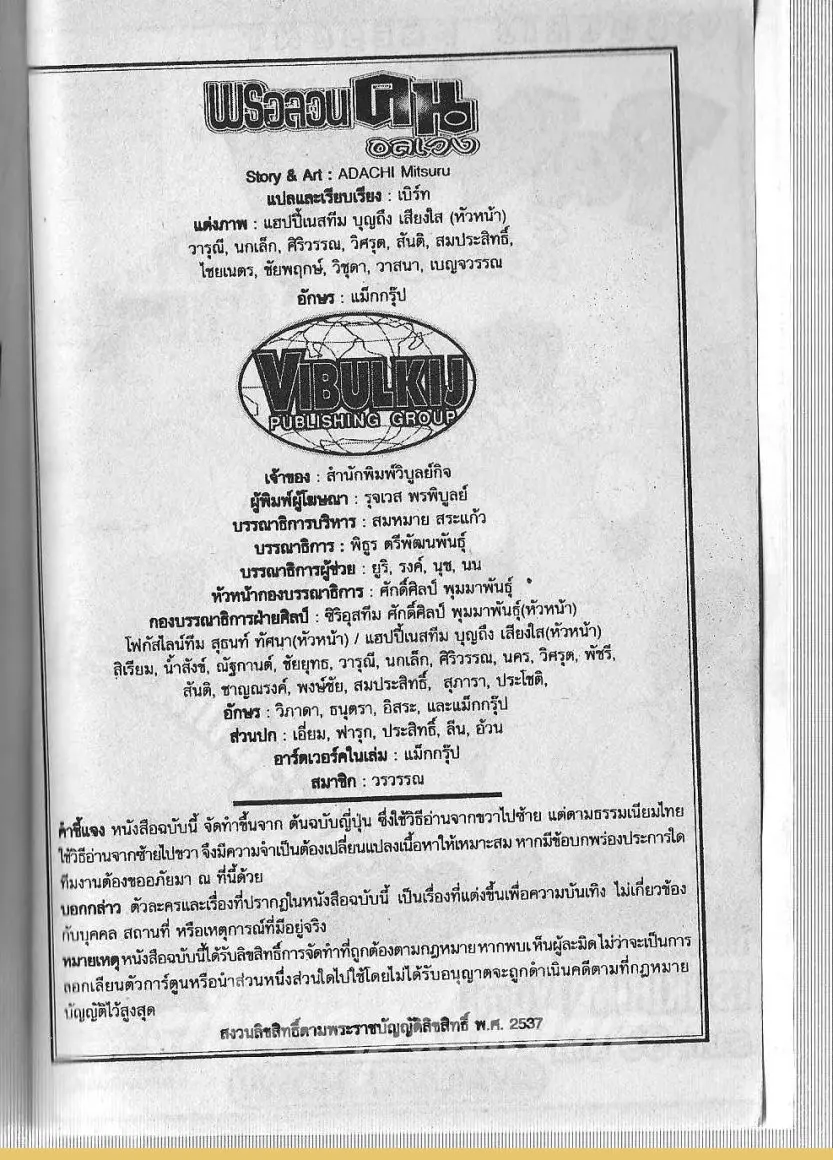 พรอลวน คน
อลเวง
Story & Art : ADACHI Mitsuru
แปลและเรียบเรียง : เบิร์ท
แต่งภาพ : แฮปปี้เนสทีม บุญถึง เสียงใส (หัวหน้า)
วารุณี, นกเล็ก, ศิริวรรณ, วิศรุต, สันติ, สมประสิทธิ์,
ไชยเนตร, ชัยพฤกษ์, วิชุดา, วาสนา, เบญจวรรณ
อักษร : แม็กกรุ๊ป
VIBULKIJ
PUBLISHING GROUP
เจ้าของ : สำนักพิมพ์วิบูลย์กิจ
ผู้พิมพ์ผู้โฆษณา : รุจเวส พรพิบูลย์
บรรณาธิการบริหาร : สมหมาย สระแก้ว
บรรณาธิการ : พิธูร ตรีพัฒนพันธุ์
บรรณาธิการผู้ช่วย : ยูริ, รงค์, นุช, นน
หัวหน้ากองบรรณาธิการ : ศักดิ์ศิลป์ พุมมาพันธุ์
กองบรรณาธิการฝ่ายศิลป์ : ซิริอุสทีม ศักดิ์ศิลป์ พุมมาพันธุ์(หัวหน้า)
โฟกัสไลน์ทีม สุธนท์ ทัศนา(หัวหน้า) / แฮปปี้เนสทีม บุญถึง เสียงใส(หัวหน้า)
สิเรียม, น้ำสังข์, ณัฐกานต์, ชัยยุทธ, วารุณี, นกเล็ก, ศิริวรรณ, นคร, วิศรุต, พัชรี,
สันติ, ชาญณรงค์, พงษ์ชัย, สมประสิทธิ์, สุภารา, ประโชติ,
อักษร : วิภาดา, ธนุตรา, อิสระ, และแม็กกรุ๊ป
ส่วนปก : เอี่ยม, ฟารุก, ประสิทธิ์, ลีน, อ้วน
อาร์ตเวอร์คในเล่ม : แม็กกรุ๊ป
สมาชิก : วรวรรณ
คำชี้แจง หนังสือฉบับนี้ จัดทำขึ้นจาก ต้นฉบับญี่ปุ่น ซึ่งใช้วิธีอ่านจากขวาไปซ้าย แต่ตามธรรมเนียมไทย
ใช้วิธีอ่านจากซ้ายไปขวา จึงมีความจำเป็นต้องเปลี่ยนแปลงเนื้อหาให้เหมาะสม หากมีข้อบกพร่องประการใด
ทีมงานต้องขออภัยมา ณ ที่นี้ด้วย
บอกกล่าว ตัวละครและเรื่องที่ปรากฏในหนังสือฉบับนี้ เป็นเรื่องที่แต่งขึ้นเพื่อความบันเทิง ไม่เกี่ยวข้อง
กับบุคคล สถานที่ หรือเหตุการณ์ที่มีอยู่จริง
หมายเหตุ หนังสือฉบับนี้ได้รับลิขสิทธิ์การจัดทำที่ถูกต้องตามกฎหมาย หากพบเห็นผู้ละมิด ไม่ว่าจะเป็นการ
ลอกเลียนตัวการ์ตูนหรือนำส่วนหนึ่งส่วนใดไปใช้โดยไม่ได้รับอนุญาตจะถูกดำเนินคดีตามที่กฎหมาย
บัญญัติไว้สูงสุด
สงวนลิขสิทธิ์ตามพระราชบัญญัติลิขสิทธิ์ พ.ศ. 2537